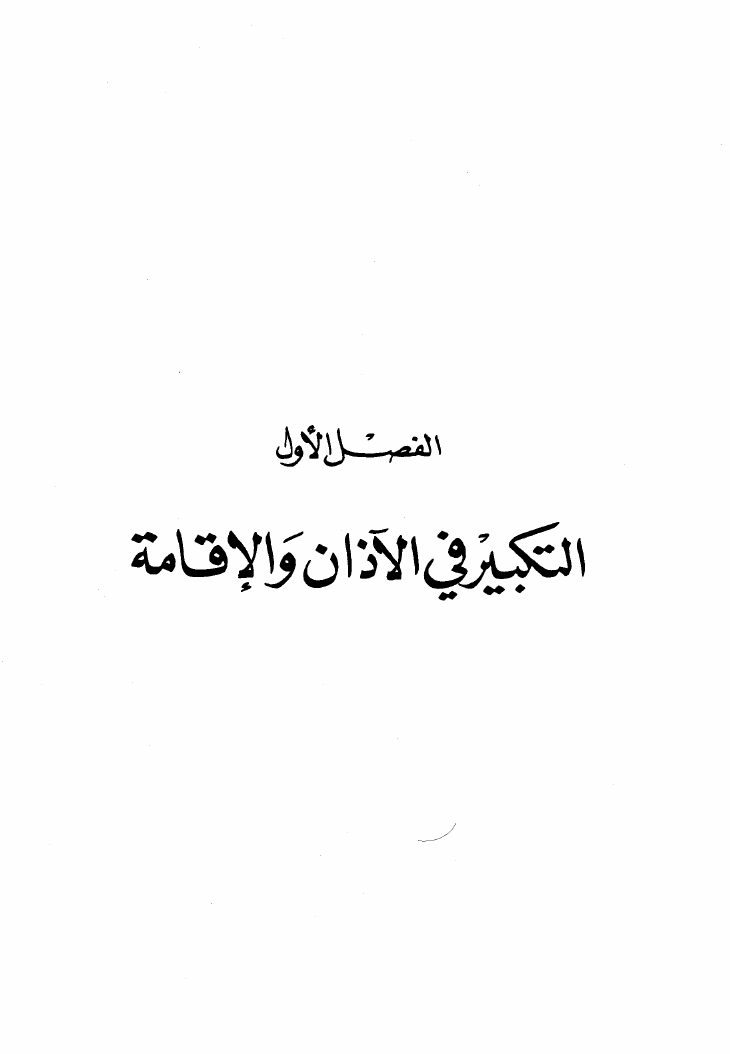 الفصل الأول
التكبير في الآذان وَالإقامة